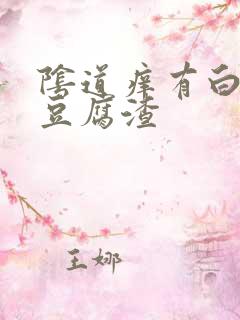 陰道痒有白
豆腐渣
王娜